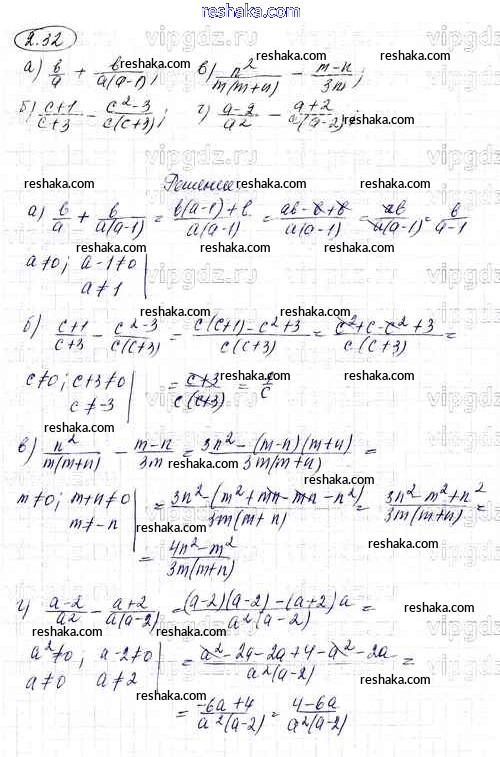 www.reshaka.ru
2.32
а) b/a + b/(a(a-1)); в) n²/(m(m+n)) - (m-n)/3m;
б) (c+1)/(c+3) - (c²-3)/(c(c+3)); г) (a-2)/a² - (a+2)/(a(a-2));
Решение
а) b/a + b/(a(a-1)) = (b(a-1)+b)/(a(a-1)) = (ab-b+b)/(a(a-1)) = ab/(a(a-1)) = b/(a-1)
a≠0; a-1≠0
a≠1
б) (c+1)/(c+3) - (c²-3)/(c(c+3)) = (c(c+1)-c²+3)/(c(c+3)) = (c²+c-c²+3)/(c(c+3)) =
c≠0; c+3≠0 = (c+3)/(c(c+3)) = 1/c
c≠-3
в) n²/(m(m+n)) - (m-n)/3m = (3n²-(m-n)(m+n))/(3m(m+n)) =
m≠0; m+n≠0 = (3n²-(m²+mn-mn-n²))/(3m(m+n)) = (3n²-m²+n²)/(3m(m+n)) =
m≠-n
= (4n²-m²)/(3m(m+n))
г) (a-2)/a² - (a+2)/(a(a-2)) = ((a-2)(a-2)-(a+2)a)/(a²(a-2)) =
a²≠0; a-2≠0 = (a²-2a-2a+4-a²-2a)/(a²(a-2)) =
a≠0 a≠2
= (-6a+4)/(a²(a-2)) = (4-6a)/(a²(a-2))